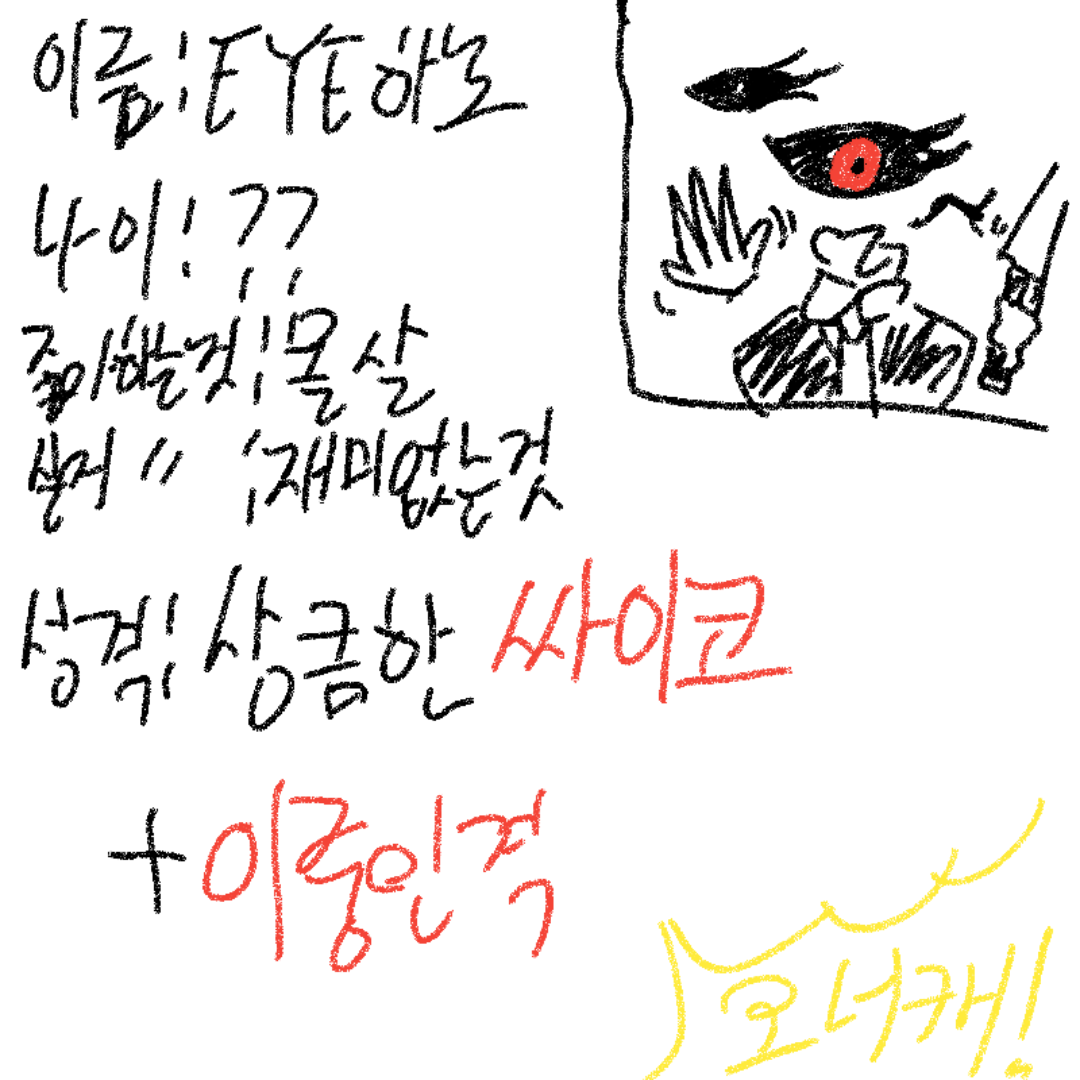 이름:EYE하노
나이:??
좋아하는것:몰살
싫어〃:재미없는것
성격:상큼한 싸이코
+이중인격
오너캐!